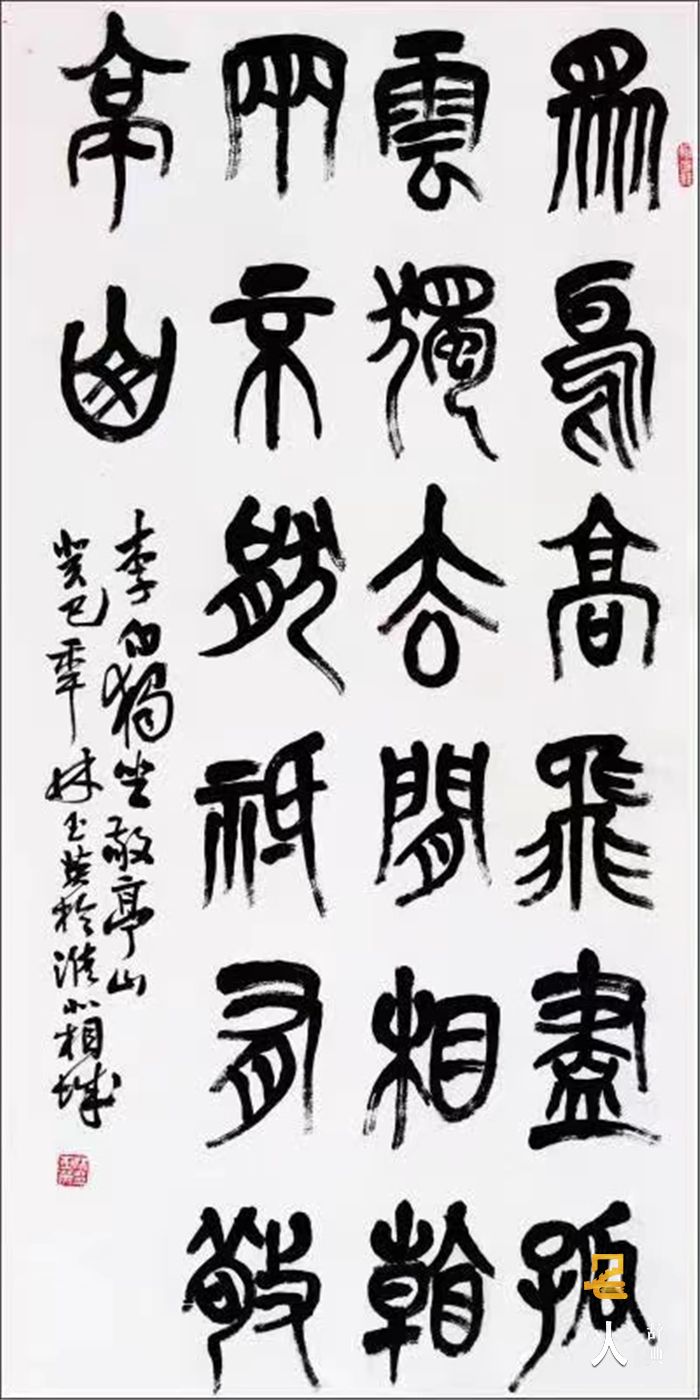 眾鳥高飛盡孤
雲獨去閒相看
兩不厭祇有敬
亭山
李白獨坐敬亭山
癸巳年林玉英於淮北相城
名人